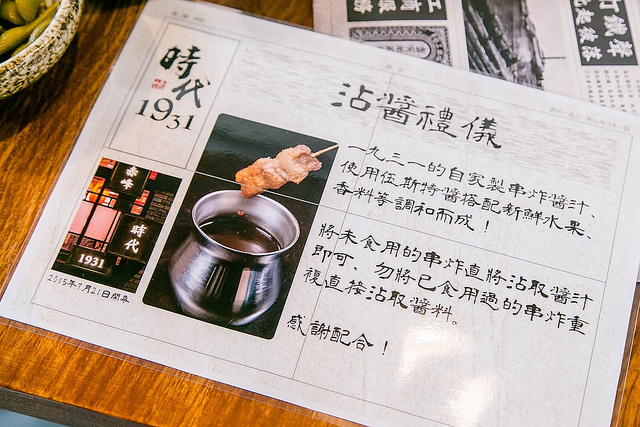 時代
1931
沾醬禮儀
一九三一的自家製串炸醬汁、
使用伍斯特醬搭配新鮮水果、
香料等調和而成！
將未食用的串炸直將沾取醬汁
即可，勿將已食用過的串炸重
複直接沾取醬料。
感謝配合！
赤峰
時代
1931
2015年7月21日開幕